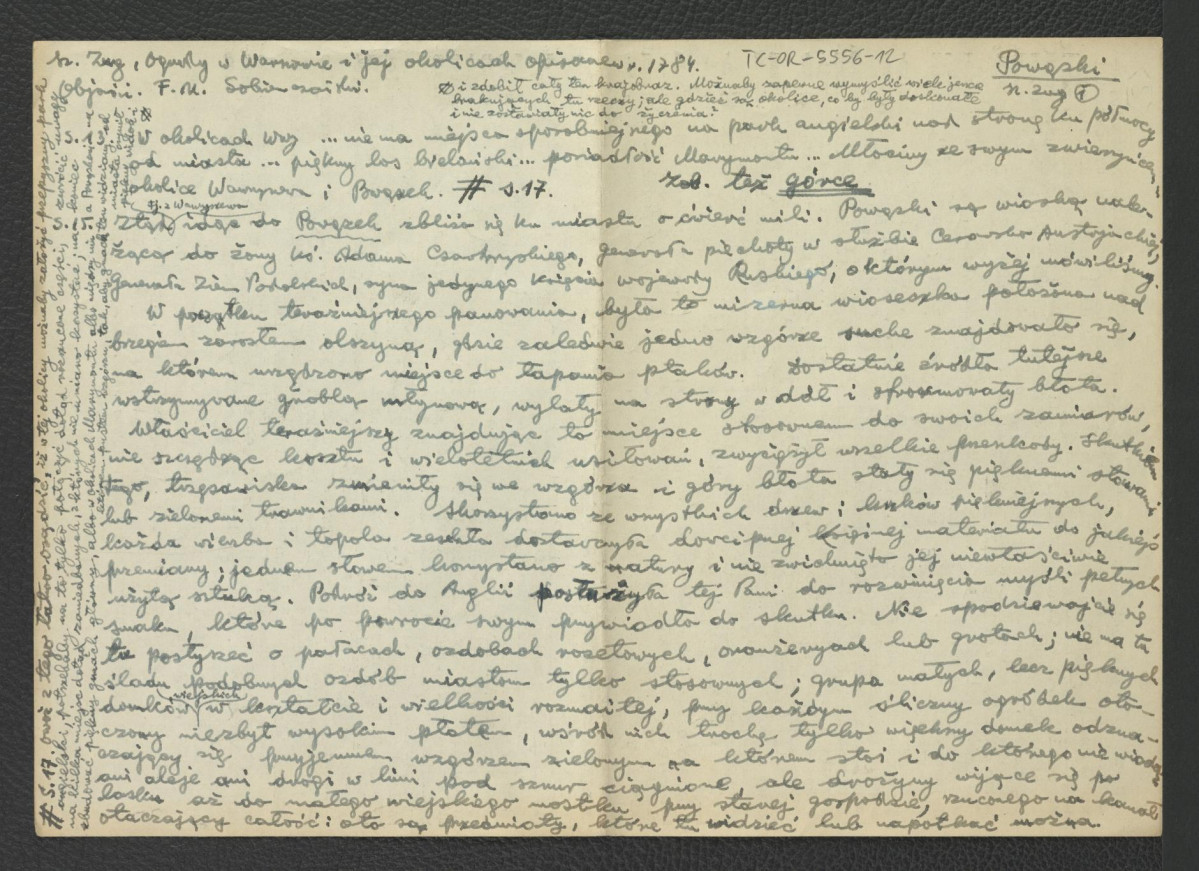 Sz. Zug, Ogrody w Warszawie i jej okolicach opisane w r. 1784.
Objaśn. F. M. Sobieszczański.
TC-OR-5556-12
Powązki
n. Zug ①
i zdobił cały ten krajobraz. Możnaby zapewne wymyślić wiele jeszcze
brakujących tu rzeczy; ale gdzież są okolice, co by były doskonałe
i nie zostawiały nic do życzenia!
W okolicach Wwy ... nie ma miejsca sposobniejszego na park angielski nad stronę ku północy
od miasta ... piękny las bielański ... posiadłość Marymontu ... Młociny ze swym zwierzyńcem
okolice Wawrzyszewa i Powązek. # s. 17. Zob. też górce
tj. z Wawrzyszewa
Ztąd idąc do Powązek zbliża się ku miastu o ćwierć mili. Powązki są wioską nale-
żącą do żony ks. Adama Czartoryskiego, generała piechoty w służbie Cesarsko Austrjackiej,
Generała Ziem Podolskich, syna jedynego księcia wojewody Ruskiego, o którym wyżej mówiliśmy.
W początku teraźniejszego panowania, była to mizerna wioseczka położona nad
brzegiem zarosłem olszyną, gdzie zaledwie jedno wzgórze suche znajdowało się,
na którem urządzono miejsce do łapania ptaków. Dostatnie źródła tutejsze
wstrzymywane groblą młynową, wylały na strony w dół i sformowały błota.
Właściciel teraźniejszy znajdując to miejsce stosownem do swoich zamiarów,
nie szczędząc kosztu i wieloletnich usiłowań, zwyciężył wszelkie przeszkody. Skutkiem
tego, trzęsawiska zmieniły się we wzgórza i góry błota stały się pięknemi stawami
lub zielonemi trawnikami. Skorzystano ze wszystkich drzew i krzków piękniejszych,
każda wierzba i topola zeschła dostarczyła dowcipnej księżnej materiału do jakiejś
przemiany; jednem słowem korzystano z natury i nie zwichnięto jej niewłaściwie
użytą sztuką. Podróż do Anglii posłużyła tej Pani do rozwinięcia myśli pełnych
smaku, które po powrocie swym przywiodła do skutku. Nie spodziewajcie się
tu posłyszeć o pałacach, ozdobach rozetowych, oranżeryach lub grotach; nie ma tu
śladu podobnych ozdób miastom tylko stosownych; grupa małych, lecz pięknych
wiejskich
domków w kształcie i wielkości rozmaitej, przy każdym śliczny ogródek oto-
czony niezbyt wysokim płotem, wśród nich trochę tylko większy domek odzna-
czający się przyjemnem wzgórzem zielonym na którem stoi i do którego nie wiodą
ani aleje ani drogi w linii pod sznur ciągnione ale drożyny wijące się po
lasku aż do małego wiejskiego mostku przy starej gospodzie, rzuconego na kanał
otaczający całość: oto są przedmioty, które tu widzieć lub napotkać można.
# S. 17. Owóż z tego łatwo osądzić, iż w tej okolicy możnaby założyć przepyszny park
angielski, potrzebaby na to tylko połączyć dotąd rozrzucone części, i zwrócić uwagę
na kilka miejsc dotąd zaniedbanych, z których nie umiano korzystać; na koniec
zbudować piękny gmach główny, albo w okolicach Marymontu albo między nim a Powązkami